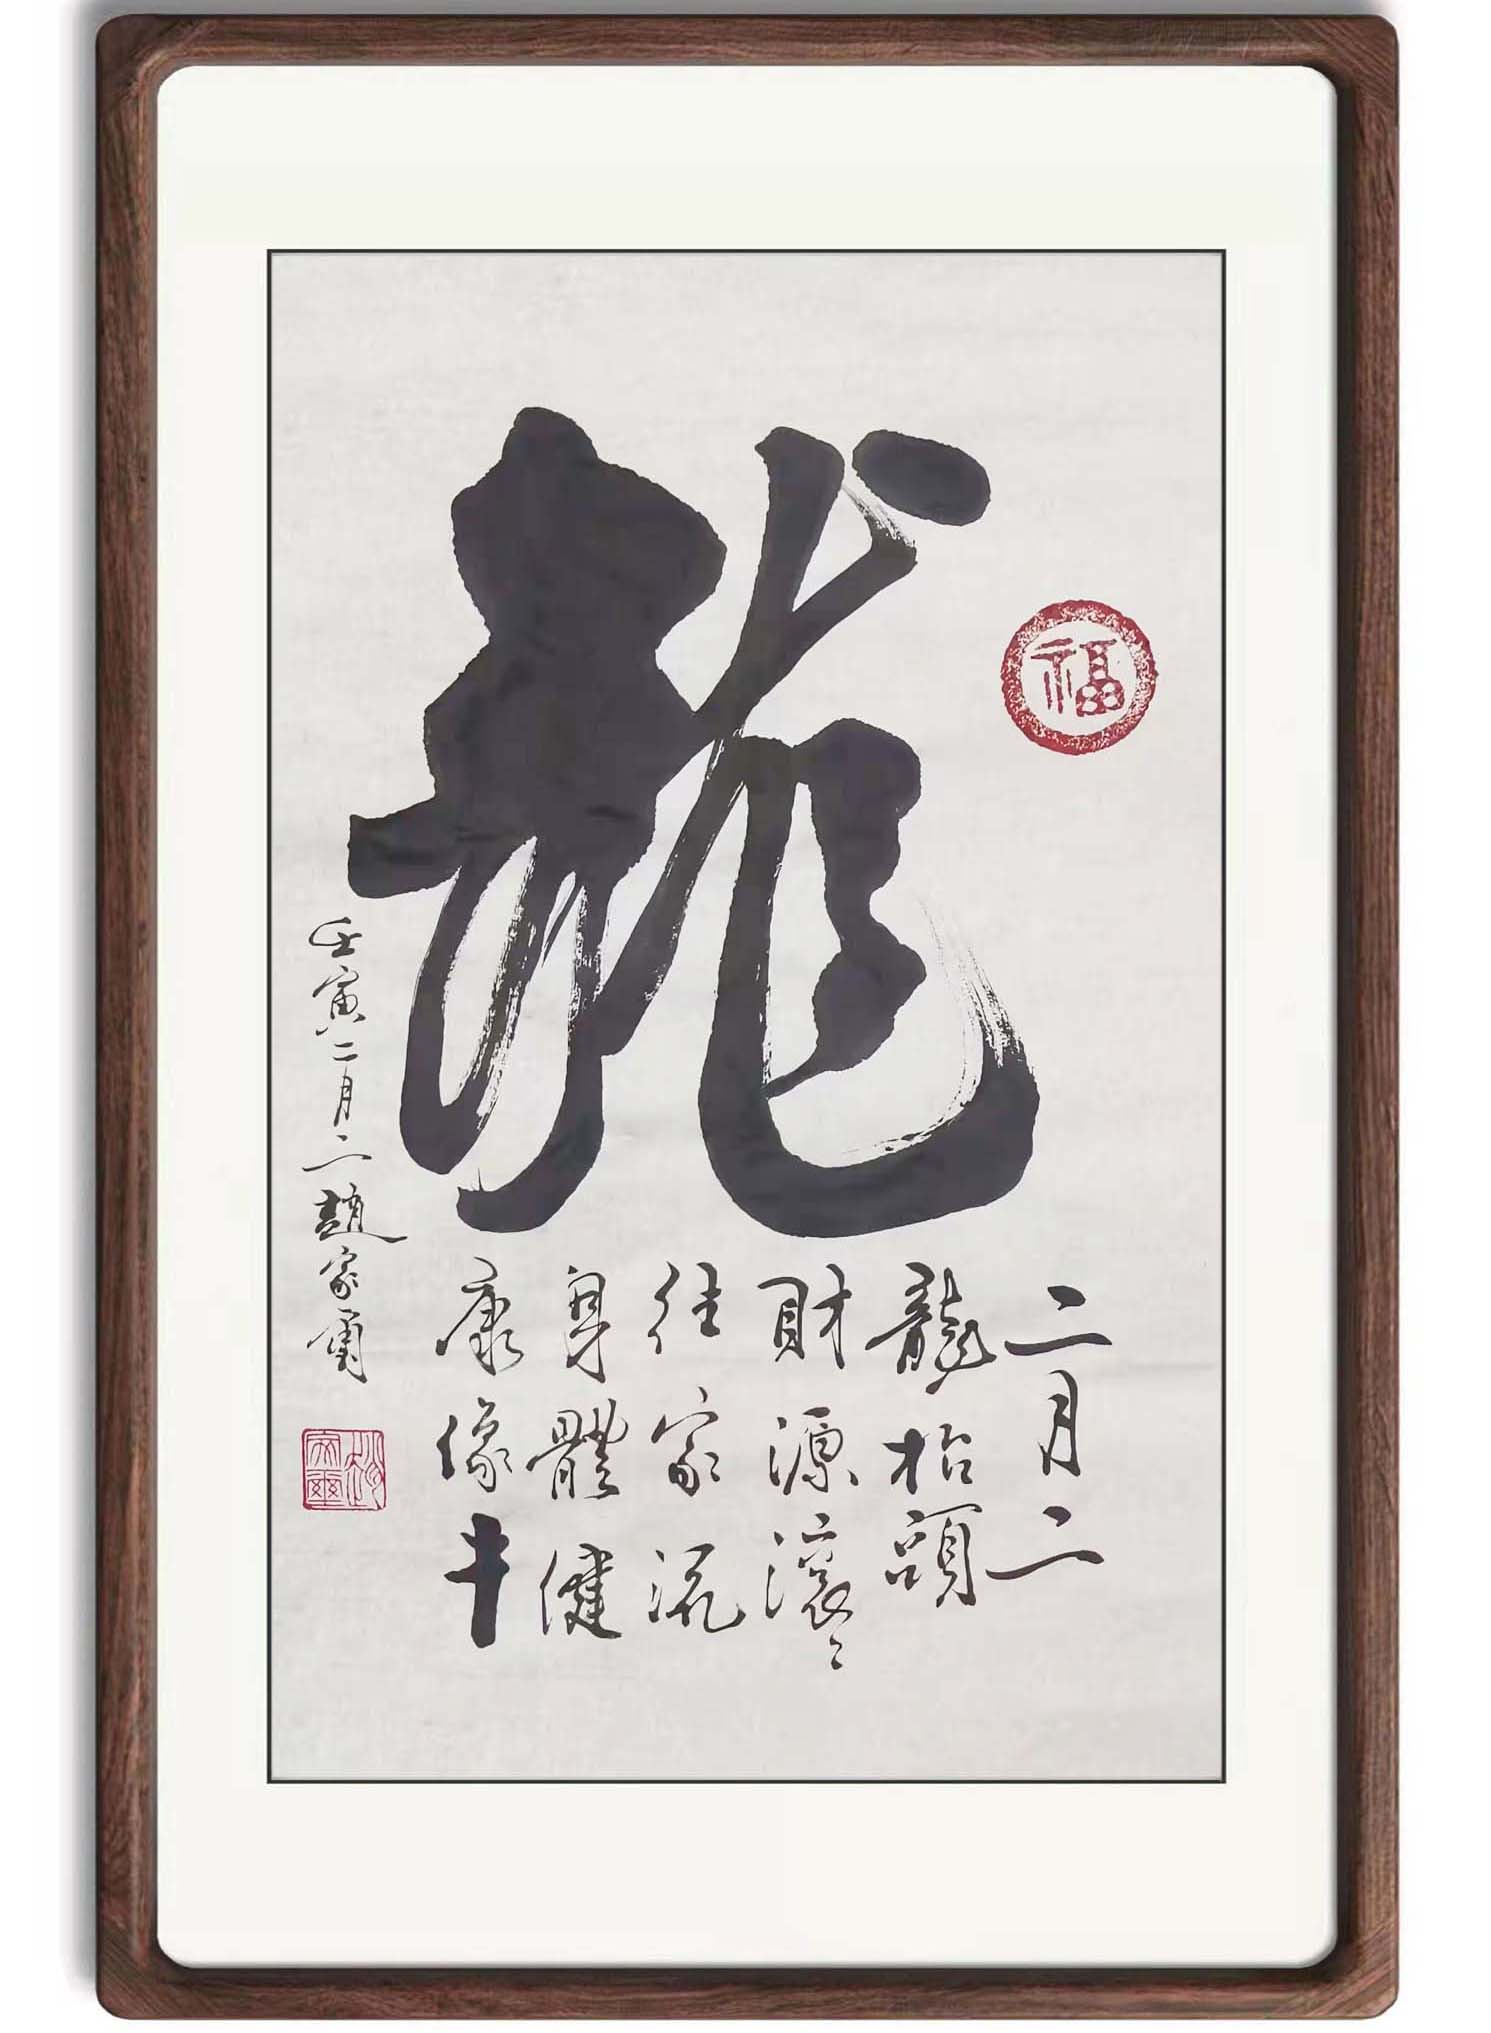 龍
福
二月二
龍抬頭
財源滾〻
往家流
身體健
康像牛
壬寅二月二趙家爾